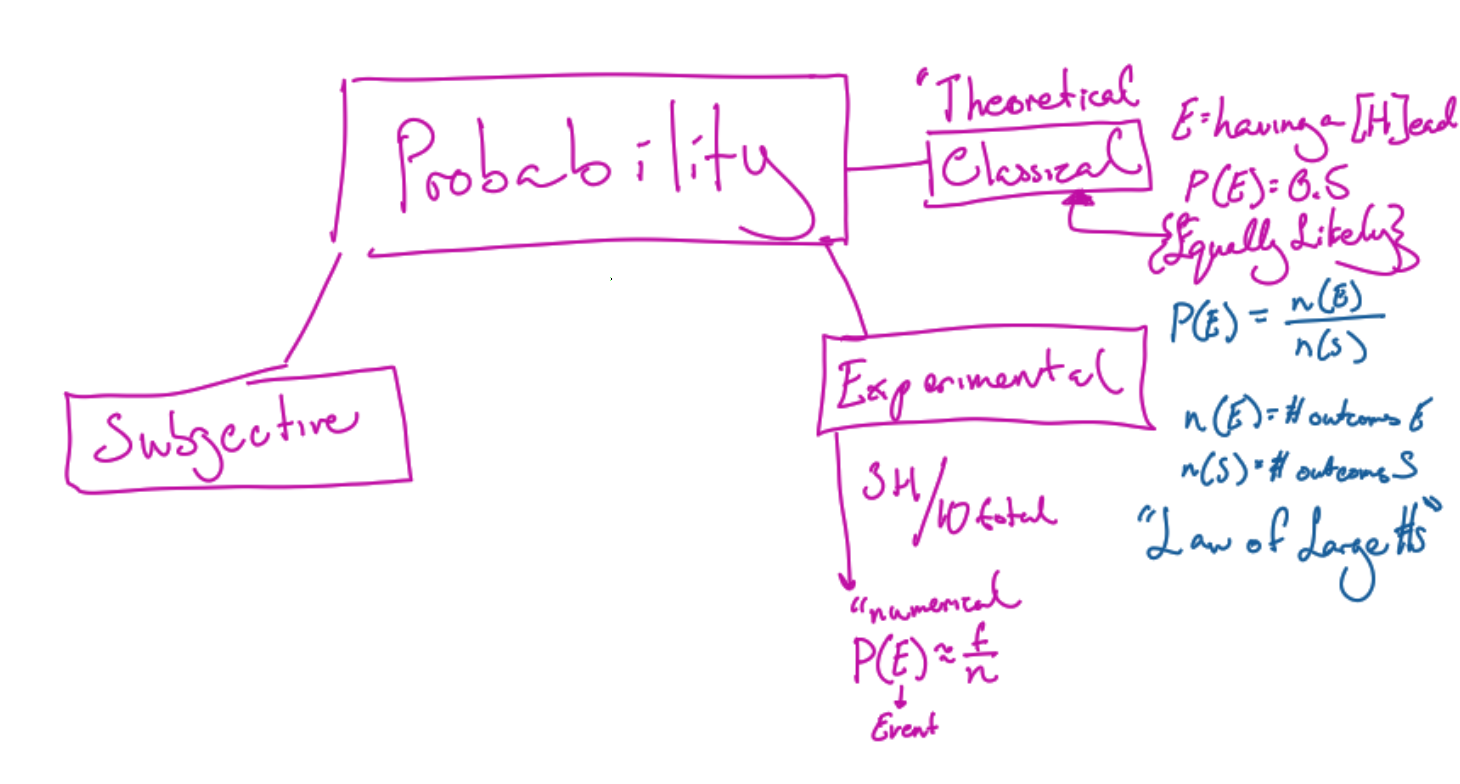 Probability
"Theoretical
Classical
E=having a [H]ead
P(E)=0.5
{Equally Likely}
P(E) = n(E)/n(S)
n(E)=# outcomes E
n(S)=# outcomes S
"Law of Large #s"
Subjective
Experimental
3H/10 total
"numerical
P(E)≈f/n
Event